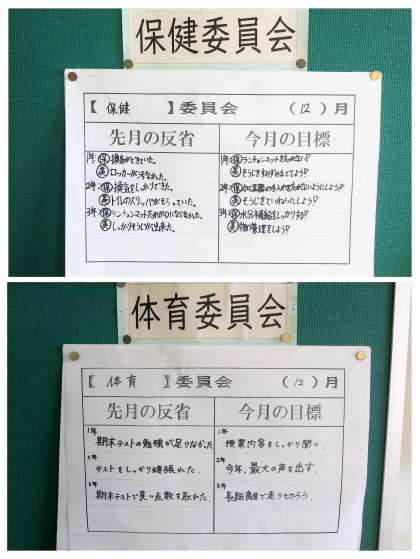 保健委員会
【 保健 】委員会 (12)月
先月の反省
今月の目標
1年 保 換気ができていた。
美 ロッカーがきたなかった。
2年 保 換気をしっかりできた。
美 トイレのスリッパがそろっていた。
3年 保 ランチョンマット忘れが0にならなかった。
美 しっかりそうじが出来た。
1年 保 ランチョンマットを忘れない!
美 そうじをすみずみまでしよう!
2年 保
美 そうじをていねいにしよう!
3年 保 水分補給をしっかりする!
美 物の管理をしよう!
体育委員会
【 体育 】委員会 (12)月
先月の反省
今月の目標
1年
期末テストの勉強が足りなかった
2年
テストをしっかり頑張れた.
3年
期末テストで良い点数を取れた.
1年
授業内容をしっかり聞く.
2年
今年、最大の声を出す.
3年
長距離走で走り切ろう.